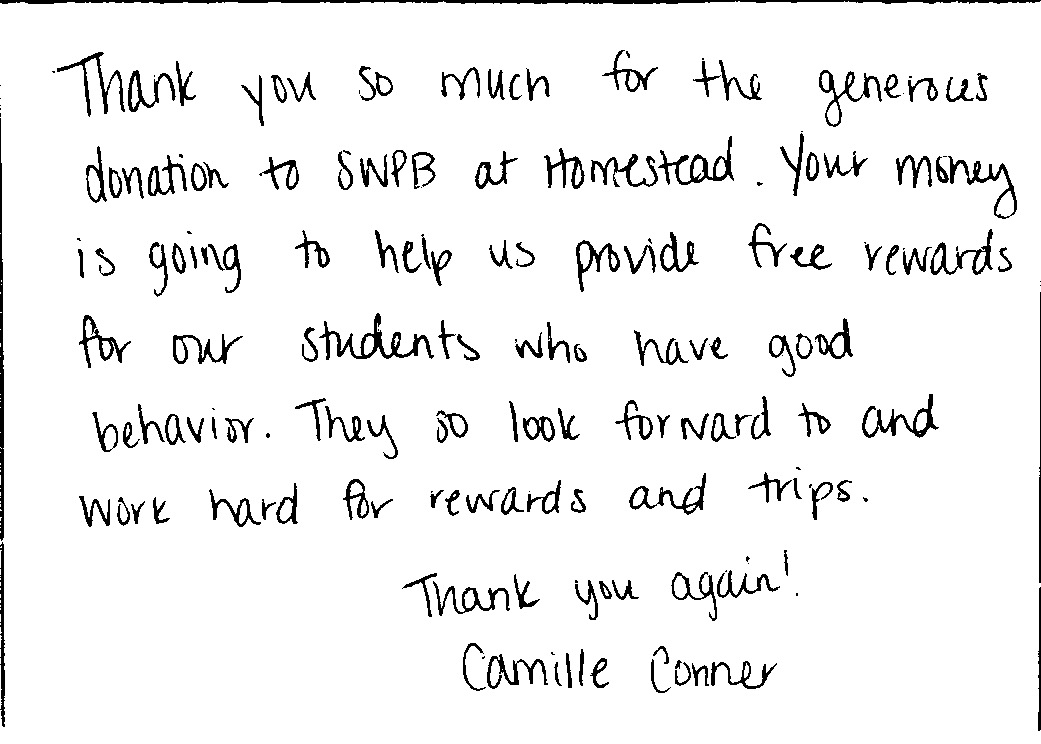 Thank you so much for the generous
donation to SWPB at Homestead. Your money
is going to help us provide free rewards
for our students who have good
behavior. They so look forward to and
work hard for rewards and trips.
Thank you again!
Camille Conner